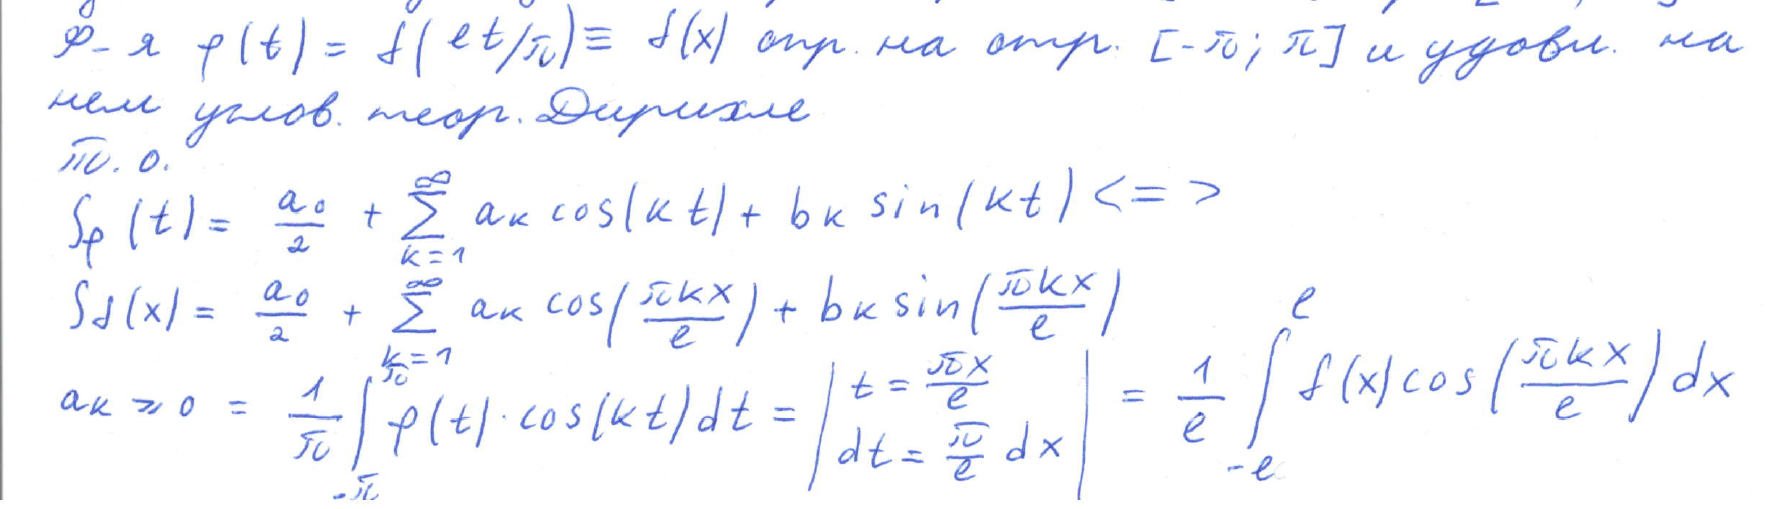 ф-я φ(t) = f(et/π) ≡ f(x) опр. на отр. [-π; π] и удовл. на
нем услов. теор. Дирихле
т. о.
Sφ(t) = a₀/2 + ∑_{k=1}^{∞} aₖ cos(kt) + bₖ sin(kt) <=>
Sf(x) = a₀/2 + ∑_{k=1}^{∞} aₖ cos(πkx/e) + bₖ sin(πkx/e)
aₖ ≥ 0 = 1/π ∫_{-π}^{π} φ(t)·cos(kt)dt = | t = πx/e dt = π/e dx | = 1/e ∫_{-e}^{e} f(x)cos(πkx/e)dx